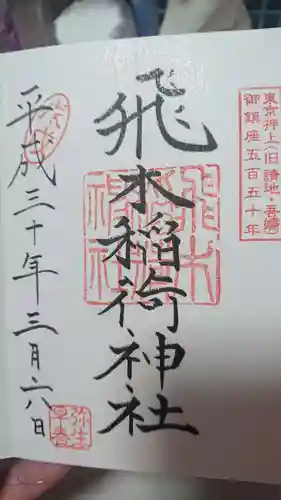 東京押上(旧 請地・吾嬬)
御鎮座五百五十年
飛木稲荷神社
平成三十年三月六八日
弥生
早春